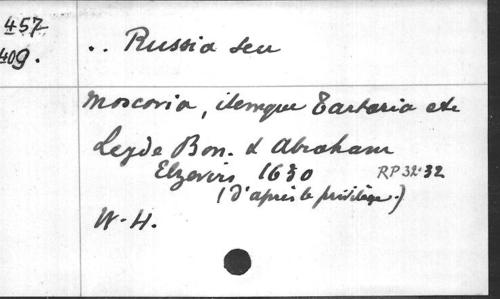 457
409.
.. Russia seu
Moscovia, itemque Tartaria etc
Leyde Bon. & Abraham
Elzeviers 1630 RP 32·32
(d'après le privilège.)
W-H.